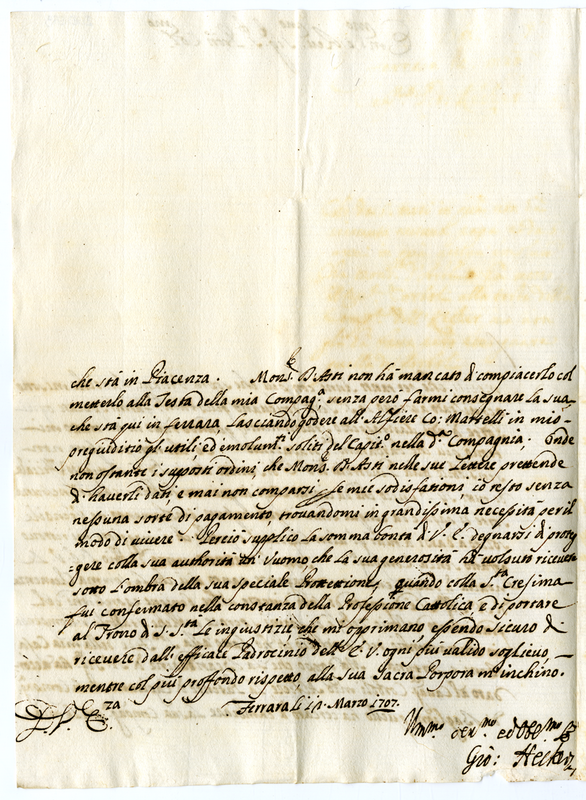 che stà in Piacenza. Mons.r D'Asti non hà mancato di compiacerlo col
metterlo alla Testa della mia Compag.a senza però farmi consegnare la sua
che stà qui in Ferrara, Lasciando godere all'Alfiere Co: Martelli in mio
pregiuditio gl'utili, ed emolum.ti soliti del Capit.o nella d.a Compagnia; Onde
non ostante i supposti ordini, che Mons.r D'Asti nelle sue Lettere prettende
di haverli dati, e mai non comparsi le mie sodisfationi, io resto senza
nessuna sorte di pagamento, trovandomi in grandissima necessità per il
modo di vivere. Perciò supplico la somma bontà di V. E. degnarsi di prote=
=gere colla sua authorità un'Vuomo, che la sua generosità hà volsuto ricevere
sotto l'ombra della sua speciale Prottettione, quando colla S.ta Cresima
fui confermato nella constanza della Professione Cattolica, e di portare
al Trono di S. S.tà Le ingiustizie, che mi opprimano essendo sicuro di
ricevere dall'efficace Padrocinio dell'E. V. ogni più valido soglievo,
mentre col più proffondo rispetto alla sua Sacra Porpora m'inchino.
Ferrara li Marzo 1707.
D. V. E.za
Um.mo ed Obb.mo
Gio: